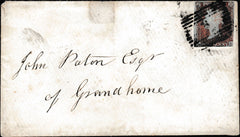 John Paton Esqr
of Grandhome